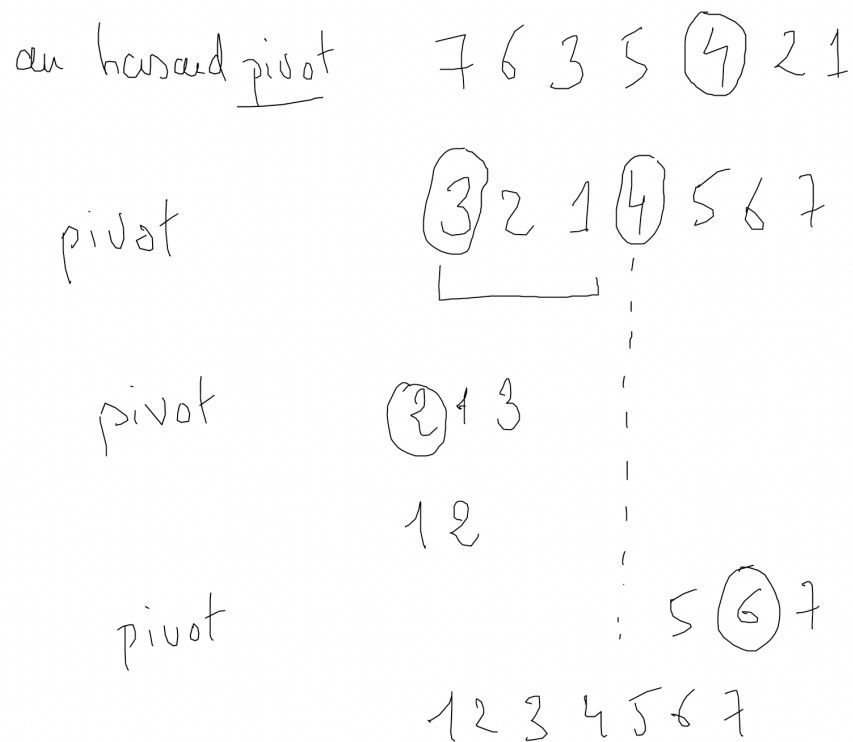 au hasard pivot 7 6 3 5 4 2 1
pivot 3 2 1 4 5 6 7
pivot 2 1 3
1 2
pivot 5 6 7
1 2 3 4 5 6 7